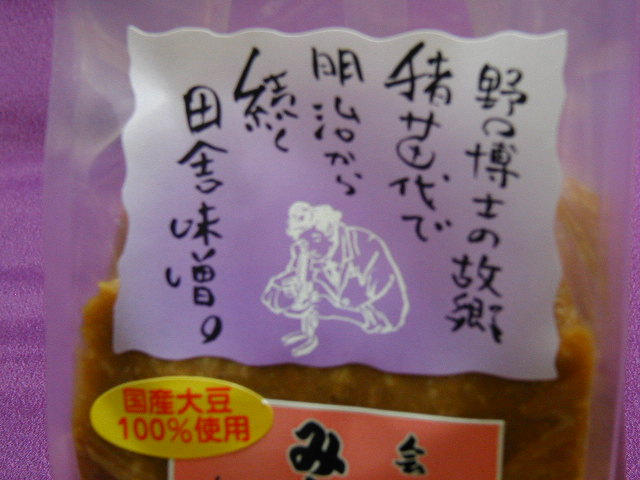 野口博士の故郷
猪苗代で
明治から
続く
田舎味噌の
国産大豆
100%使用
会
み